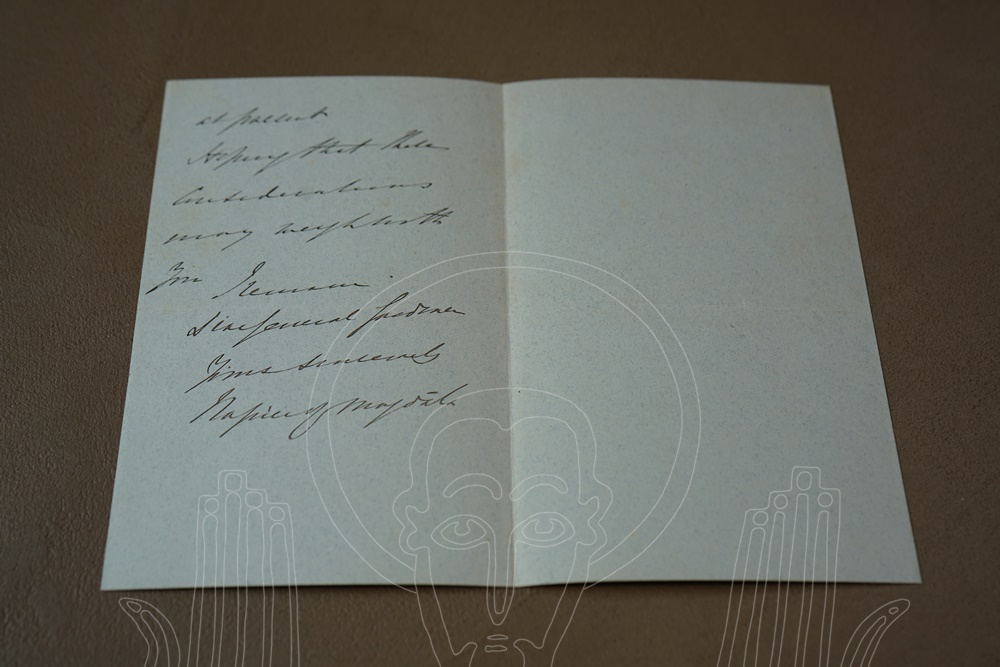 at present
Hoping that these
considerations
may weigh with
you I remain
Dear General Gardiner
Yours sincerely
Napier of Magdala